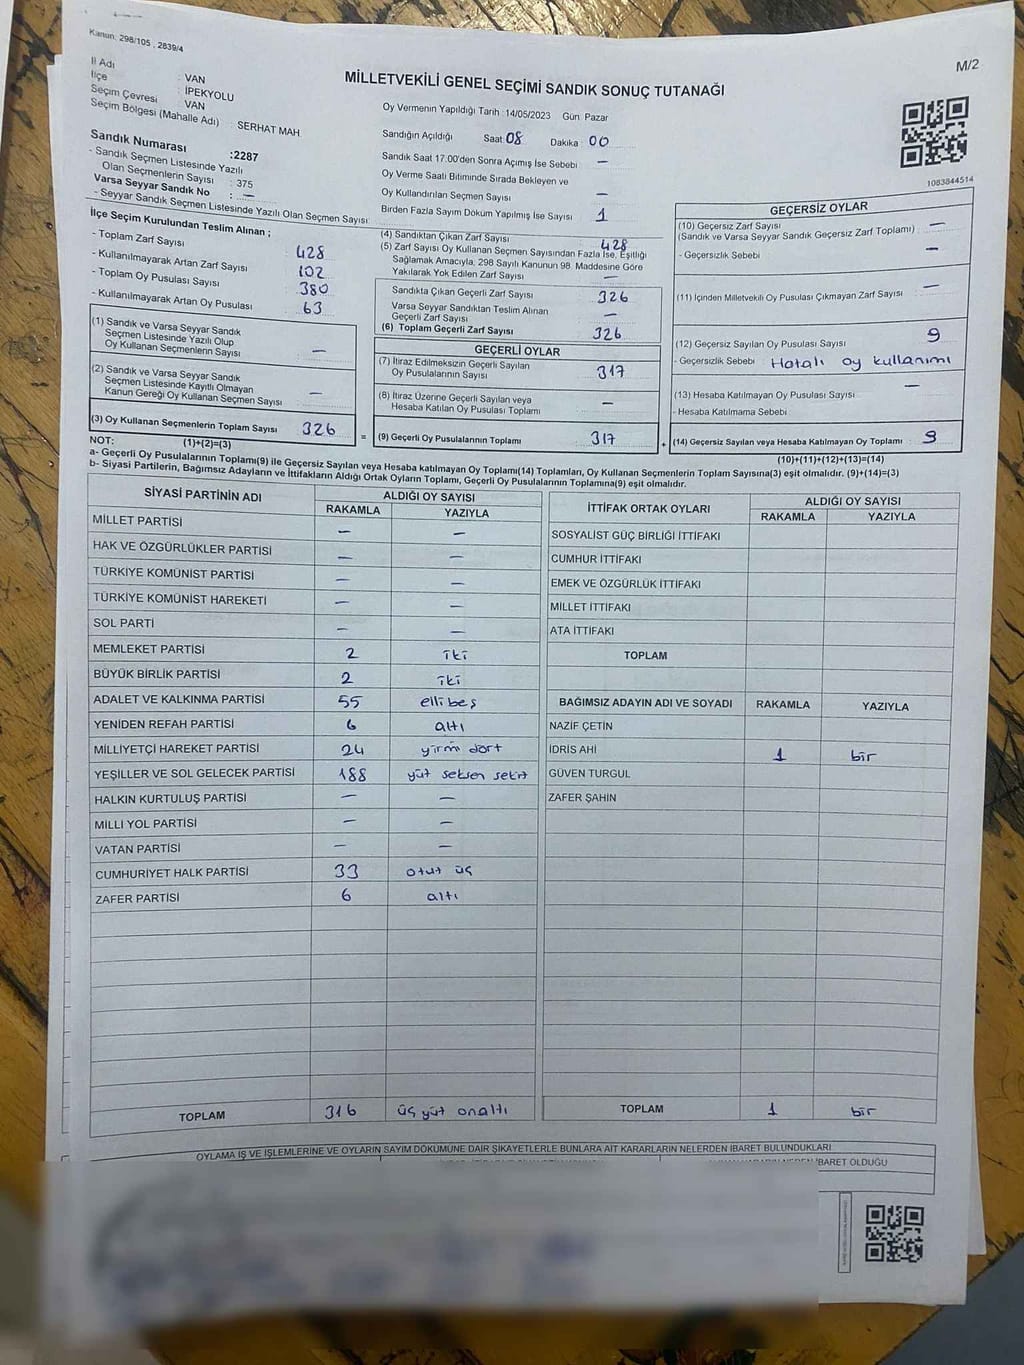 Kanun: 298/105 , 2839/4
M/2
MİLLETVEKİLİ GENEL SEÇİMİ SANDIK SONUÇ TUTANAĞI
İl Adı : VAN
İlçe : İPEKYOLU
Seçim Çevresi : VAN
Seçim Bölgesi (Mahalle Adı) : SERHAT MAH
Sandık Numarası :2287
- Sandık Seçmen Listesinde Yazılı
Olan Seçmenlerin Sayısı : 375
Varsa Seyyar Sandık No : —
- Seyyar Sandık Seçmen Listesinde Yazılı Olan Seçmen Sayısı:
Oy Vermenin Yapıldığı Tarih :14/05/2023 Gün: Pazar
Sandığın Açıldığı Saat: 08 Dakika: 00
Sandık Saat 17.00'den Sonra Açımış İse Sebebi —
Oy Verme Saati Bitiminde Sırada Bekleyen ve
Oy Kullandırılan Seçmen Sayısı —
Birden Fazla Sayım Döküm Yapılmış İse Sayısı 1
1083844514
İlçe Seçim Kurulundan Teslim Alınan ;
- Toplam Zarf Sayısı 428
- Kullanılmayarak Artan Zarf Sayısı 102
- Toplam Oy Pusulası Sayısı 380
- Kullanılmayarak Artan Oy Pusulası 63
(1) Sandık ve Varsa Seyyar Sandık
Seçmen Listesinde Yazılı Olup
Oy Kullanan Seçmenlerin Sayısı —
(2) Sandık ve Varsa Seyyar Sandık
Seçmen Listesinde Kayıtlı Olmayan
Kanun Gereği Oy Kullanan Seçmen Sayısı —
(3) Oy Kullanan Seçmenlerin Toplam Sayısı 326
(4) Sandıktan Çıkan Zarf Sayısı 428
(5) Zarf Sayısı Oy Kullanan Seçmen Sayısından Fazla İse, Eşitliği
Sağlamak Amacıyla; 298 Sayılı Kanunun 98. Maddesine Göre
Yakılarak Yok Edilen Zarf Sayısı —
Sandıkta Çıkan Geçerli Zarf Sayısı 326
Varsa Seyyar Sandıktan Teslim Alınan
Geçerli Zarf Sayısı —
(6) Toplam Geçerli Zarf Sayısı 326
GEÇERLİ OYLAR
(7) İtiraz Edilmeksizin Geçerli Sayılan
Oy Pusulalarının Sayısı 317
(8) İtiraz Üzerine Geçerli Sayılan veya
Hesaba Katılan Oy Pusulası Toplamı —
= (9) Geçerli Oy Pusulalarının Toplamı 317
GEÇERSİZ OYLAR
(10) Geçersiz Zarf Sayısı —
(Sandık ve Varsa Seyyar Sandık Geçersiz Zarf Toplamı)
- Geçersizlik Sebebi —
(11) İçinden Milletvekili Oy Pusulası Çıkmayan Zarf Sayısı —
(12) Geçersiz Sayılan Oy Pusulası Sayısı 9
- Geçersizlik Sebebi Hatalı oy kullanımı
(13) Hesaba Katılmayan Oy Pusulası Sayısı —
- Hesaba Katılmama Sebebi
+ (14) Geçersiz Sayılan veya Hesaba Katılmayan Oy Toplamı 9
NOT: (1)+(2)=(3)
(10)+(11)+(12)+(13)=(14)
a- Geçerli Oy Pusulalarının Toplamı(9) ile Geçersiz Sayılan veya Hesaba katılmayan Oy Toplamı(14) Toplamları, Oy Kullanan Seçmenlerin Toplam Sayısına(3) eşit olmalıdır. (9)+(14)=(3)
b- Siyasi Partilerin, Bağımsız Adayların ve İttifakların Aldığı Ortak Oyların Toplamı, Geçerli Oy Pusulalarının Toplamına(9) eşit olmalıdır.
SİYASİ PARTİNİN ADI ALDIĞI OY SAYISI
RAKAMLA YAZIYLA
MİLLET PARTİSİ — —
HAK VE ÖZGÜRLÜKLER PARTİSİ — —
TÜRKİYE KOMÜNİST PARTİSİ — —
TÜRKİYE KOMÜNİST HAREKETİ — —
SOL PARTİ — —
MEMLEKET PARTİSİ 2 iki
BÜYÜK BİRLİK PARTİSİ 2 iki
ADALET VE KALKINMA PARTİSİ 55 elli beş
YENİDEN REFAH PARTİSİ 6 altı
MİLLİYETÇİ HAREKET PARTİSİ 24 yirmi dört
YEŞİLLER VE SOL GELECEK PARTİSİ 188 yüz seksen sekiz
HALKIN KURTULUŞ PARTİSİ — —
MİLLİ YOL PARTİSİ — —
VATAN PARTİSİ — —
CUMHURİYET HALK PARTİSİ 33 otuz üç
ZAFER PARTİSİ 6 altı
TOPLAM 316 üç yüz onaltı
İTTİFAK ORTAK OYLARI ALDIĞI OY SAYISI
RAKAMLA YAZIYLA
SOSYALİST GÜÇ BİRLİĞİ İTTİFAKI
CUMHUR İTTİFAKI
EMEK VE ÖZGÜRLÜK İTTİFAKI
MİLLET İTTİFAKI
ATA İTTİFAKI
TOPLAM
BAĞIMSIZ ADAYIN ADI VE SOYADI RAKAMLA YAZIYLA
NAZİF ÇETİN
İDRİS AHİ 1 bir
GÜVEN TURGUL
ZAFER ŞAHİN
TOPLAM 1 bir
OYLAMA İŞ VE İŞLEMLERİNE VE OYLARIN SAYIM DÖKÜMÜNE DAİR ŞİKAYETLERLE BUNLARA AİT KARARLARIN NELERDEN İBARET BULUNDUKLARI
İBARET OLDUĞU